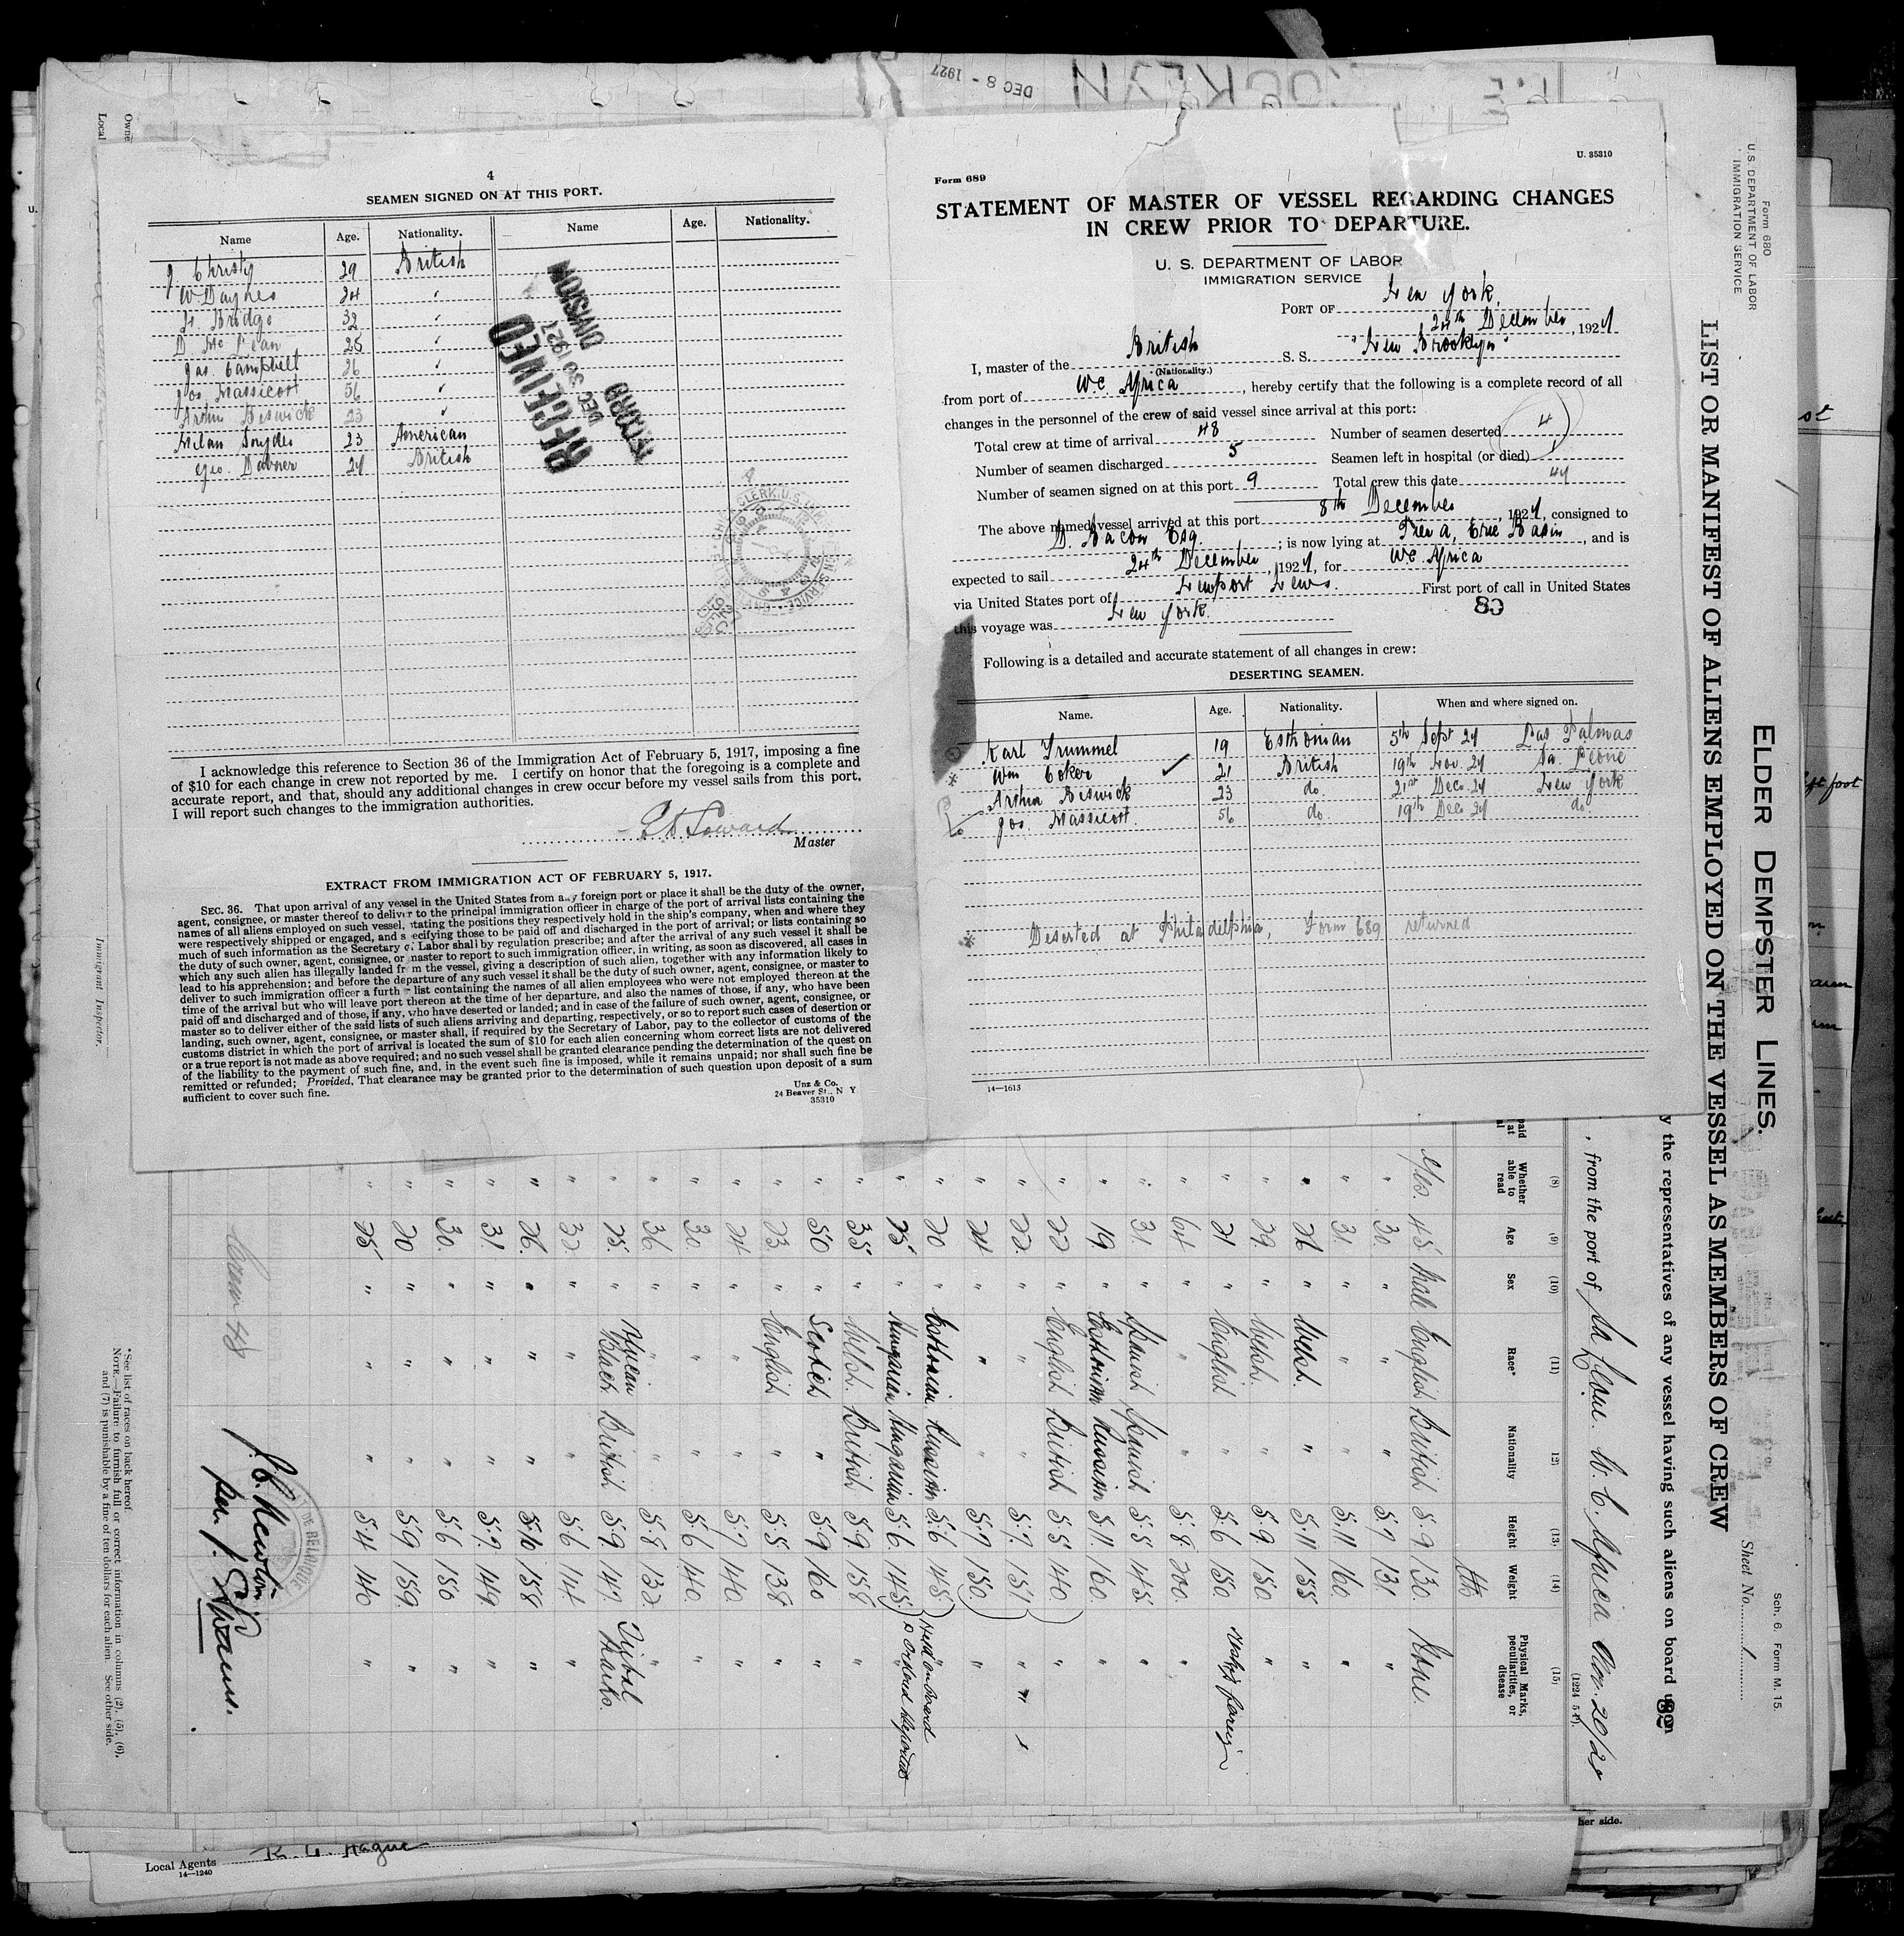 DEC 8 - 1927
4
SEAMEN SIGNED ON AT THIS PORT.
Name Age. Nationality. Name Age. Nationality.
J. Christy 29 British
W. Daynes 24 "
H. Bridge 32 "
D. Mc Lean 25 "
Jas. Campbell 26 "
Jos. Massicott 56 "
Arthur Beswick 23 "
Milan Snyder 23 American
Geo. Danner 27 British
RECEIVED
DEC 30 1927
RECORD
DIVISION
I acknowledge this reference to Section 36 of the Immigration Act of February 5, 1917, imposing a fine
of $10 for each change in crew not reported by me. I certify on honor that the foregoing is a complete and
accurate report, and that, should any additional changes in crew occur before my vessel sails from this port,
I will report such changes to the immigration authorities.
Master
EXTRACT FROM IMMIGRATION ACT OF FEBRUARY 5, 1917.
SEC. 36. That upon arrival of any vessel in the United States from any foreign port or place it shall be the duty of the owner,
agent, consignee, or master thereof to deliver to the principal immigration officer in charge of the port of arrival lists containing the
names of all aliens employed on such vessel, stating the positions they respectively hold in the ship's company, when and where they
were respectively shipped or engaged, and specifying those to be paid off and discharged in the port of arrival; or lists containing so
much of such information as the Secretary of Labor shall by regulation prescribe; and after the arrival of any such vessel it shall be
the duty of such owner, agent, consignee, or master to report to such immigration officer, in writing, as soon as discovered, all cases in
which any such alien has illegally landed from the vessel, giving a description of such alien, together with any information likely to
lead to his apprehension; and before the departure of any such vessel it shall be the duty of such owner, agent, consignee, or master to
deliver to such immigration officer a further list containing the names of all alien employees who were not employed thereon at the
time of the arrival but who will leave port thereon at the time of her departure, and also the names of those, if any, who have been
paid off and discharged and of those, if any, who have deserted or landed; and in case of the failure of such owner, agent, consignee, or
master so to deliver either of the said lists of such aliens arriving and departing, respectively, or so to report such cases of desertion or
landing, such owner, agent, consignee, or master shall, if required by the Secretary of Labor, pay to the collector of customs of the
customs district in which the port of arrival is located the sum of $10 for each alien concerning whom correct lists are not delivered
or a true report is not made as above required; and no such vessel shall be granted clearance pending the determination of the quest on
of the liability to the payment of such fine, and, in the event such fine is imposed, while it remains unpaid; nor shall such fine be
remitted or refunded; Provided, That clearance may be granted prior to the determination of such question upon deposit of a sum
sufficient to cover such fine.
Unz & Co.
24 Beaver St., N Y
35310
U. 35310
Form 689
STATEMENT OF MASTER OF VESSEL REGARDING CHANGES
IN CREW PRIOR TO DEPARTURE.
U. S. DEPARTMENT OF LABOR
IMMIGRATION SERVICE
PORT OF New York,
24th December, 1927
I, master of the British S. S. "New Brooklyn"
(Nationality.)
from port of W.C. Africa, hereby certify that the following is a complete record of all
changes in the personnel of the crew of said vessel since arrival at this port:
Total crew at time of arrival 48 Number of seamen deserted 4
Number of seamen discharged 5 Seamen left in hospital (or died) 1
Number of seamen signed on at this port 9 Total crew this date 47
The above named vessel arrived at this port 8th December, 1927, consigned to
D. Bacon Esq.; is now lying at Pier a, Erie Basin, and is
expected to sail 24th December, 1927, for W.C. Africa
via United States port of Newport News. First port of call in United States
this voyage was New York. 80
Following is a detailed and accurate statement of all changes in crew:
DESERTING SEAMEN.
Name. Age. Nationality. When and where signed on.
Karl Trummel 19 Esthonian 5th Sept 27 Las Palmas
* Wm Coker 21 British 19th Nov. 27 Sa. Leone
Arthur Beswick 23 do. 21st Dec. 27 New York
Jos. Massicott. 56 do. 19th Dec 27 do.
* Deserted at Philadelphia, Form 689 returned
14—1613
Form 680
U.S. DEPARTMENT OF LABOR
IMMIGRATION SERVICE
ELDER DEMPSTER LINES.
Sch. 6. Form M. 15.
Sheet No. 1
LIST OR MANIFEST OF ALIENS EMPLOYED ON THE VESSEL AS MEMBERS OF CREW
y the representatives of any vessel having such aliens on board upon
82
, from the port of Sa Leone. W. C. Africa Nov. 20/27
(8) (9) (10) (11) (12) (13) (14) (15)
Whether able to read Age Sex Race* Nationality Height Weight Physical Marks, peculiarities, or disease
lbs
Yes. 45. Male English British 5.9 130. None.
" 30. " " " 5.7 131. "
" 31. " " " 5.11 160. "
" 26 " Welsh. " 5.11 155 "
" 29. " Welsh. " 5.9. 150. "
" 21 " English " 5.6 150.
" 64 " " " 5.8. 200. "
" 31. " Spanish Spanish 5.5 145. "
" 19. " Esthonian Russian 5.11. 160. "
" 22 " English British 5.5 140 "
" 22. " " " 5.7. 151. "
" 24 " " " 5.7 150. "
" 20. " Esthonian Russian 5.6 145. Held on board
" 25 " Hungarian Hungarian 5.6 145. & ordered deported
" 35 " Welsh. British 5.9. 158 "
" 50 " Scotch " 5.9 160 "
" 23. " English " 5.5 138 "
" 24. " " " 5.7 140. "
" 30. " " " 5.6 140. "
" 36. " " " 5.8 132. "
" 25. " African Black British 5.9. 147. Tribal Marks.
" 32. " " " 5.6 114. "
" 26. " " " 5.10 158 "
" 31. " " " 5.7. 149. "
" 30. " " " 5.6 150 "
" 20 " " " 5.9 159. "
" 25. " " " 5.4 140 "
Crew 48
J. C. Newton.
per J. Swann.
*See list of races on back hereof.
NOTE.—Failure to furnish full or correct information in columns (2), (5), (6),
and (7) is punishable by a fine of ten dollars for each alien. See other side.
Immigrant Inspector.
her side.
Local Agents R. G. Hague
14—1240